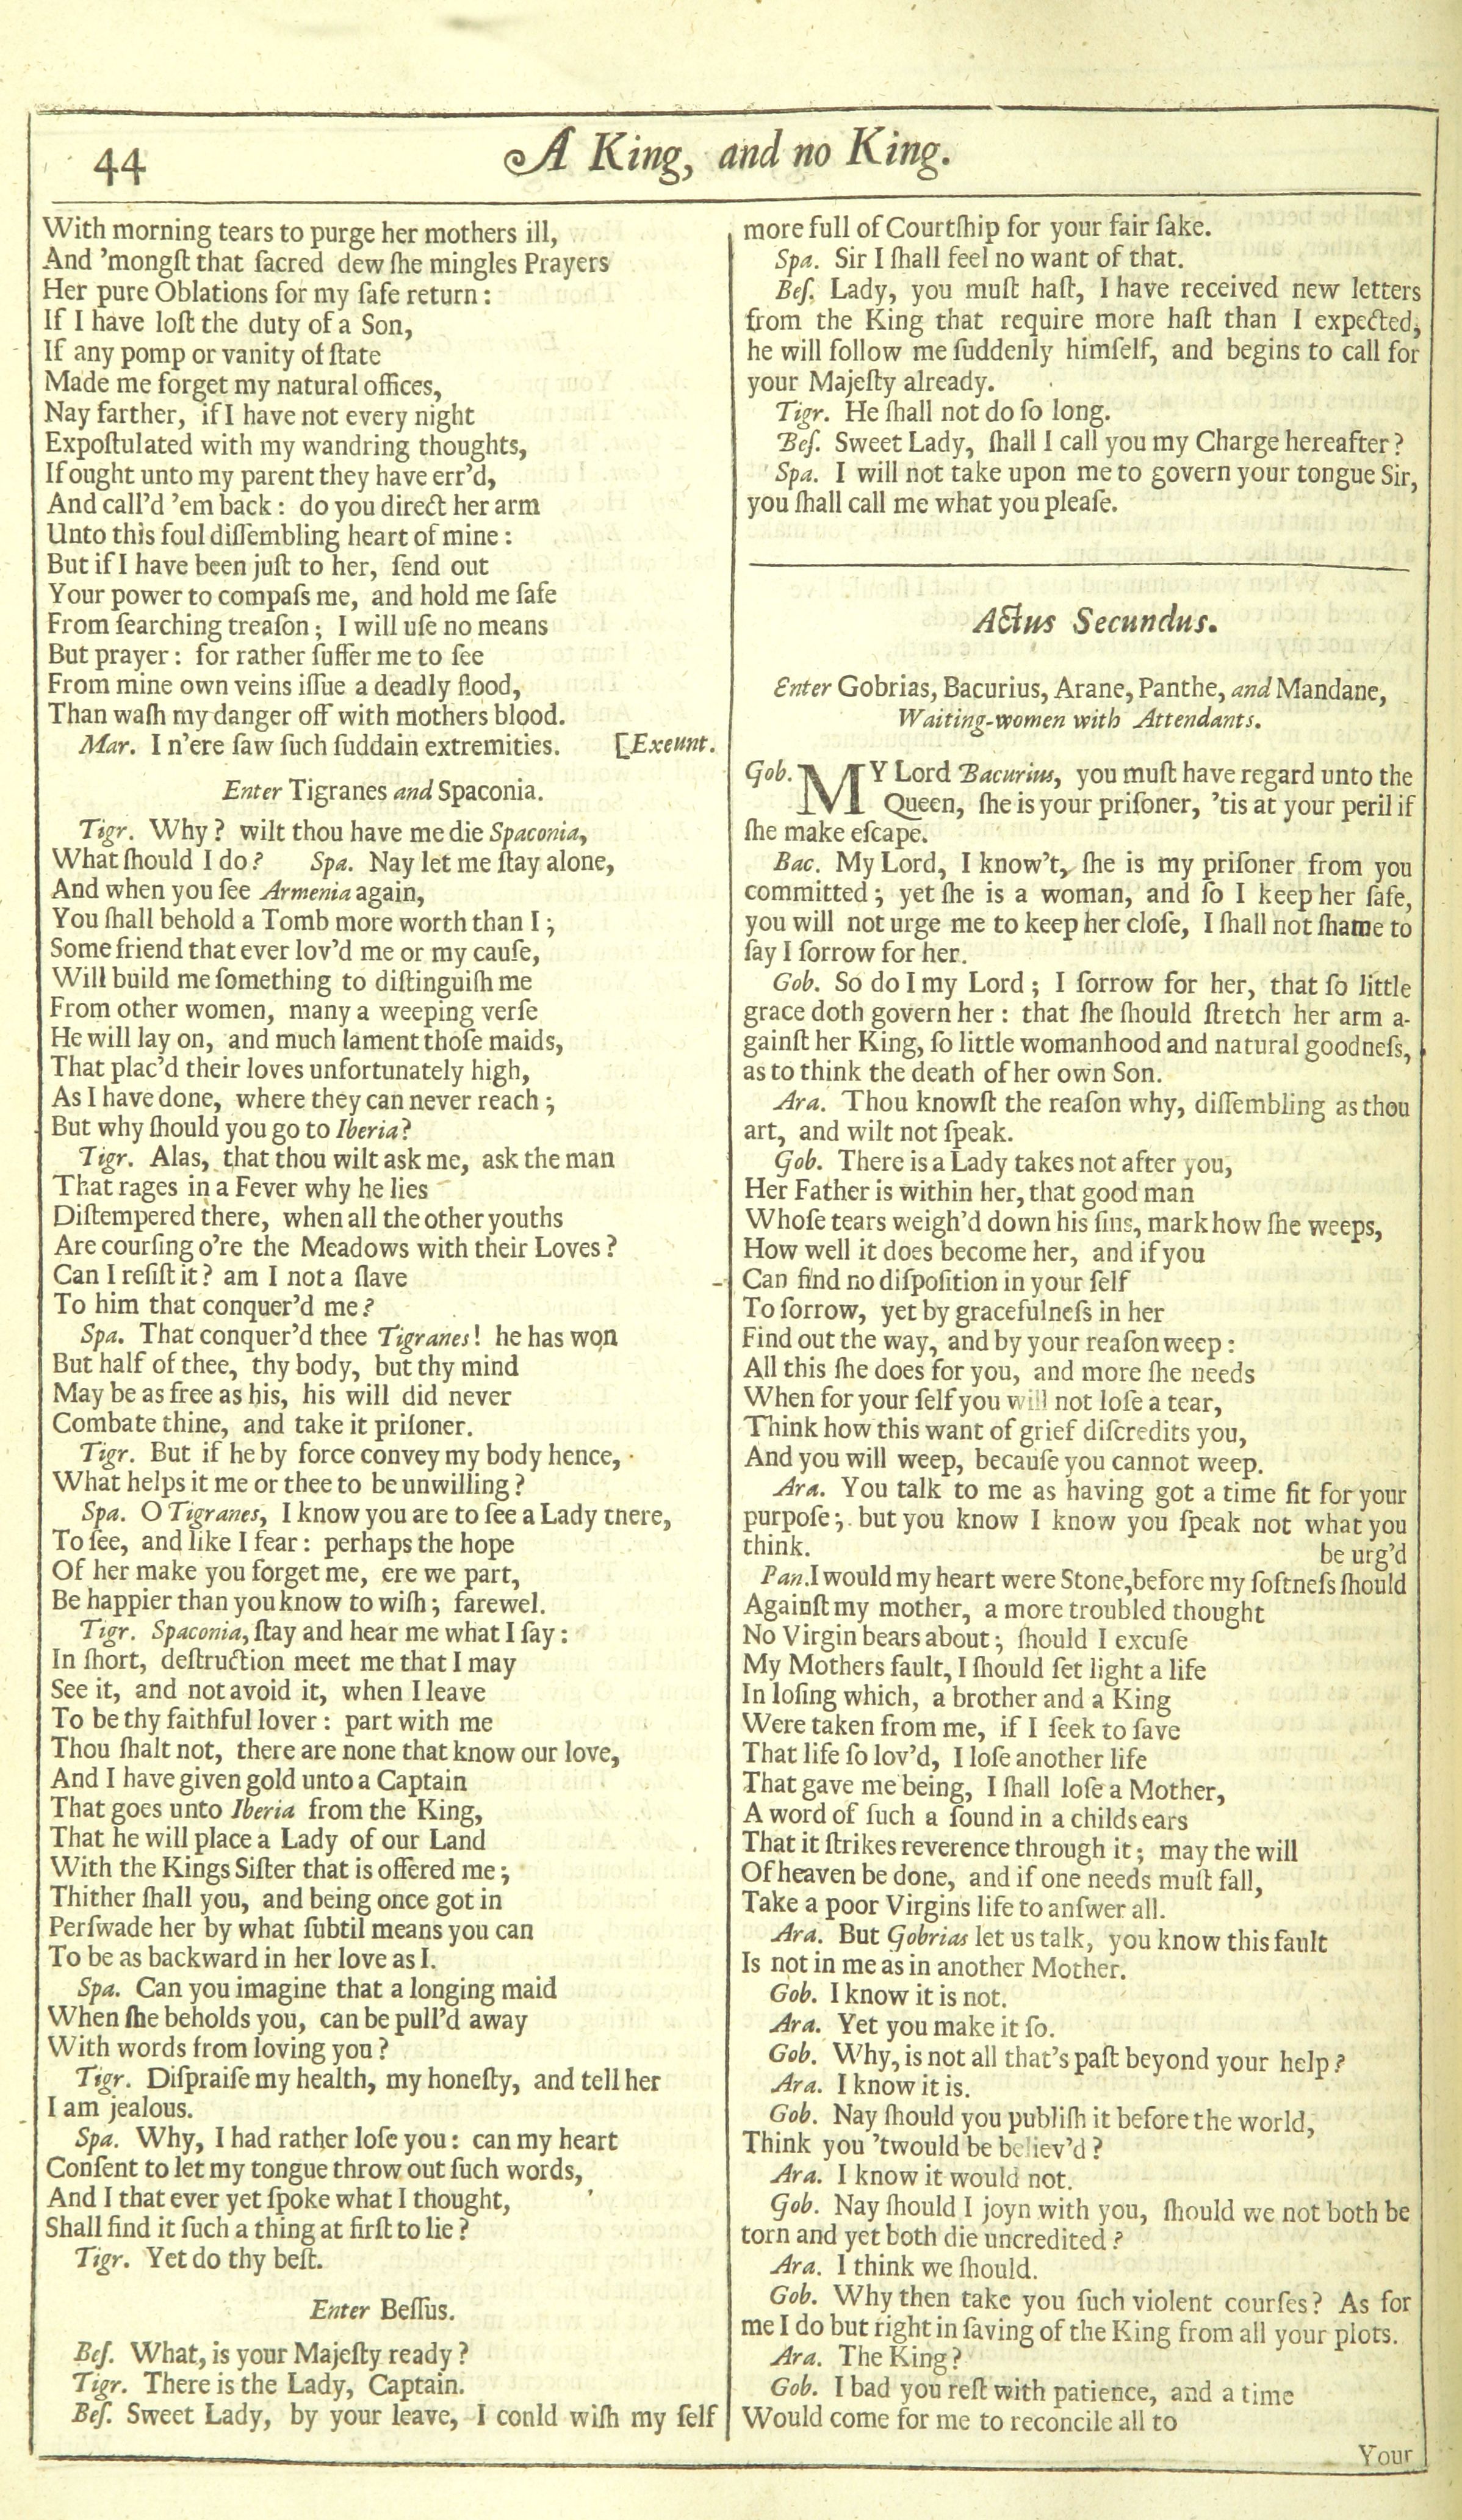 44
A King, and no King.
With morning tears to purge her mothers ill,
And 'mongſt that ſacred dew ſhe mingles Prayers
Her pure Oblations for my ſafe return:
If I have loſt the duty of a Son,
If any pomp or vanity of ſtate
Made me forget my natural offices,
Nay farther, if I have not every night
Expoſtulated with my wandring thoughts,
If ought unto my parent they have err'd,
And call'd 'em back: do you direct her arm
Unto this foul diſſembling heart of mine:
But if I have been juſt to her, ſend out
Your power to compaſs me, and hold me ſafe
From ſearching treaſon; I will uſe no means
But prayer: for rather ſuffer me to ſee
From mine own veins iſſue a deadly flood,
Than waſh my danger off with mothers blood.
Mar. I n'ere ſaw ſuch ſuddain extremities. [Exeunt.
Enter Tigranes and Spaconia.
Tigr. Why? wilt thou have me die Spaconia,
What ſhould I do? Spa. Nay let me ſtay alone,
And when you ſee Armenia again,
You ſhall behold a Tomb more worth than I;
Some friend that ever lov'd me or my cauſe,
Will build me ſomething to diſtinguiſh me
From other women, many a weeping verſe
He will lay on, and much lament thoſe maids,
That plac'd their loves unfortunately high,
As I have done, where they can never reach;
But why ſhould you go to Iberia?
Tigr. Alas, that thou wilt ask me, ask the man
That rages in a Fever why he lies
Diſtempered there, when all the other youths
Are courſing o're the Meadows with their Loves?
Can I reſiſt it? am I not a ſlave
To him that conquer'd me?
Spa. That conquer'd thee Tigranes! he has won
But half of thee, thy body, but thy mind
May be as free as his, his will did never
Combate thine, and take it priſoner.
Tigr. But if he by force convey my body hence,
What helps it me or thee to be unwilling?
Spa. O Tigranes, I know you are to ſee a Lady there,
To ſee, and like I fear: perhaps the hope
Of her make you forget me, ere we part,
Be happier than you know to wiſh; farewel.
Tigr. Spaconia, ſtay and hear me what I ſay:
In ſhort, deſtruction meet me that I may
See it, and not avoid it, when I leave
To be thy faithful lover: part with me
Thou ſhalt not, there are none that know our love,
And I have given gold unto a Captain
That goes unto Iberia from the King,
That he will place a Lady of our Land
With the Kings Siſter that is offered me;
Thither ſhall you, and being once got in
Perſwade her by what ſubtil means you can
To be as backward in her love as I.
Spa. Can you imagine that a longing maid
When ſhe beholds you, can be pull'd away
With words from loving you?
Tigr. Diſpraiſe my health, my honeſty, and tell her
I am jealous.
Spa. Why, I had rather loſe you: can my heart
Conſent to let my tongue throw out ſuch words,
And I that ever yet ſpoke what I thought,
Shall find it ſuch a thing at firſt to lie?
Tigr. Yet do thy beſt.
Enter Beſſus.
Beſ. What, is your Majeſty ready?
Tigr. There is the Lady, Captain.
Beſ. Sweet Lady, by your leave, I conld wiſh my ſelf
more full of Courtſhip for your fair ſake.
Spa. Sir I ſhall feel no want of that.
Beſ. Lady, you muſt haſt, I have received new letters
from the King that require more haſt than I expected,
he will follow me ſuddenly himſelf, and begins to call for
your Majeſty already.
Tigr. He ſhall not do ſo long.
Beſ. Sweet Lady, ſhall I call you my Charge hereafter?
Spa. I will not take upon me to govern your tongue Sir,
you ſhall call me what you pleaſe.
Actus Secundus.
Enter Gobrias, Bacurius, Arane, Panthe, and Mandane,
Waiting-women with Attendants.
Gob. MY Lord Bacurius, you muſt have regard unto the
Queen, ſhe is your priſoner, 'tis at your peril if
ſhe make eſcape.
Bac. My Lord, I know't, ſhe is my priſoner from you
committed; yet ſhe is a woman, and ſo I keep her ſafe,
you will not urge me to keep her cloſe, I ſhall not ſhame to
ſay I ſorrow for her.
Gob. So do I my Lord; I ſorrow for her, that ſo little
grace doth govern her: that ſhe ſhould ſtretch her arm a-
gainſt her King, ſo little womanhood and natural goodneſs,
as to think the death of her own Son.
Ara. Thou knowſt the reaſon why, diſſembling as thou
art, and wilt not ſpeak.
Gob. There is a Lady takes not after you,
Her Father is within her, that good man
Whoſe tears weigh'd down his ſins, mark how ſhe weeps,
How well it does become her, and if you
Can find no diſpoſition in your ſelf
To ſorrow, yet by gracefulneſs in her
Find out the way, and by your reaſon weep:
All this ſhe does for you, and more ſhe needs
When for your ſelf you will not loſe a tear,
Think how this want of grief diſcredits you,
And you will weep, becauſe you cannot weep.
Ara. You talk to me as having got a time fit for your
purpoſe; but you know I know you ſpeak not what you
think.
be urg'd
Pan. I would my heart were Stone, before my ſoftneſs ſhould
Againſt my mother, a more troubled thought
No Virgin bears about; ſhould I excuſe
My Mothers fault, I ſhould ſet light a life
In loſing which, a brother and a King
Were taken from me, if I ſeek to ſave
That life ſo lov'd, I loſe another life
That gave me being, I ſhall loſe a Mother,
A word of ſuch a ſound in a childs ears
That it ſtrikes reverence through it; may the will
Of heaven be done, and if one needs muſt fall,
Take a poor Virgins life to anſwer all.
Ara. But Gobrias let us talk, you know this fault
Is not in me as in another Mother.
Gob. I know it is not.
Ara. Yet you make it ſo.
Gob. Why, is not all that's paſt beyond your help?
Ara. I know it is.
Gob. Nay ſhould you publiſh it before the world,
Think you 'twould be believ'd?
Ara. I know it would not.
Gob. Nay ſhould I joyn with you, ſhould we not both be
torn and yet both die uncredited?
Ara. I think we ſhould.
Gob. Why then take you ſuch violent courſes? As for
me I do but right in ſaving of the King from all your plots.
Ara. The King?
Gob. I bad you reſt with patience, and a time
Would come for me to reconcile all to
Your